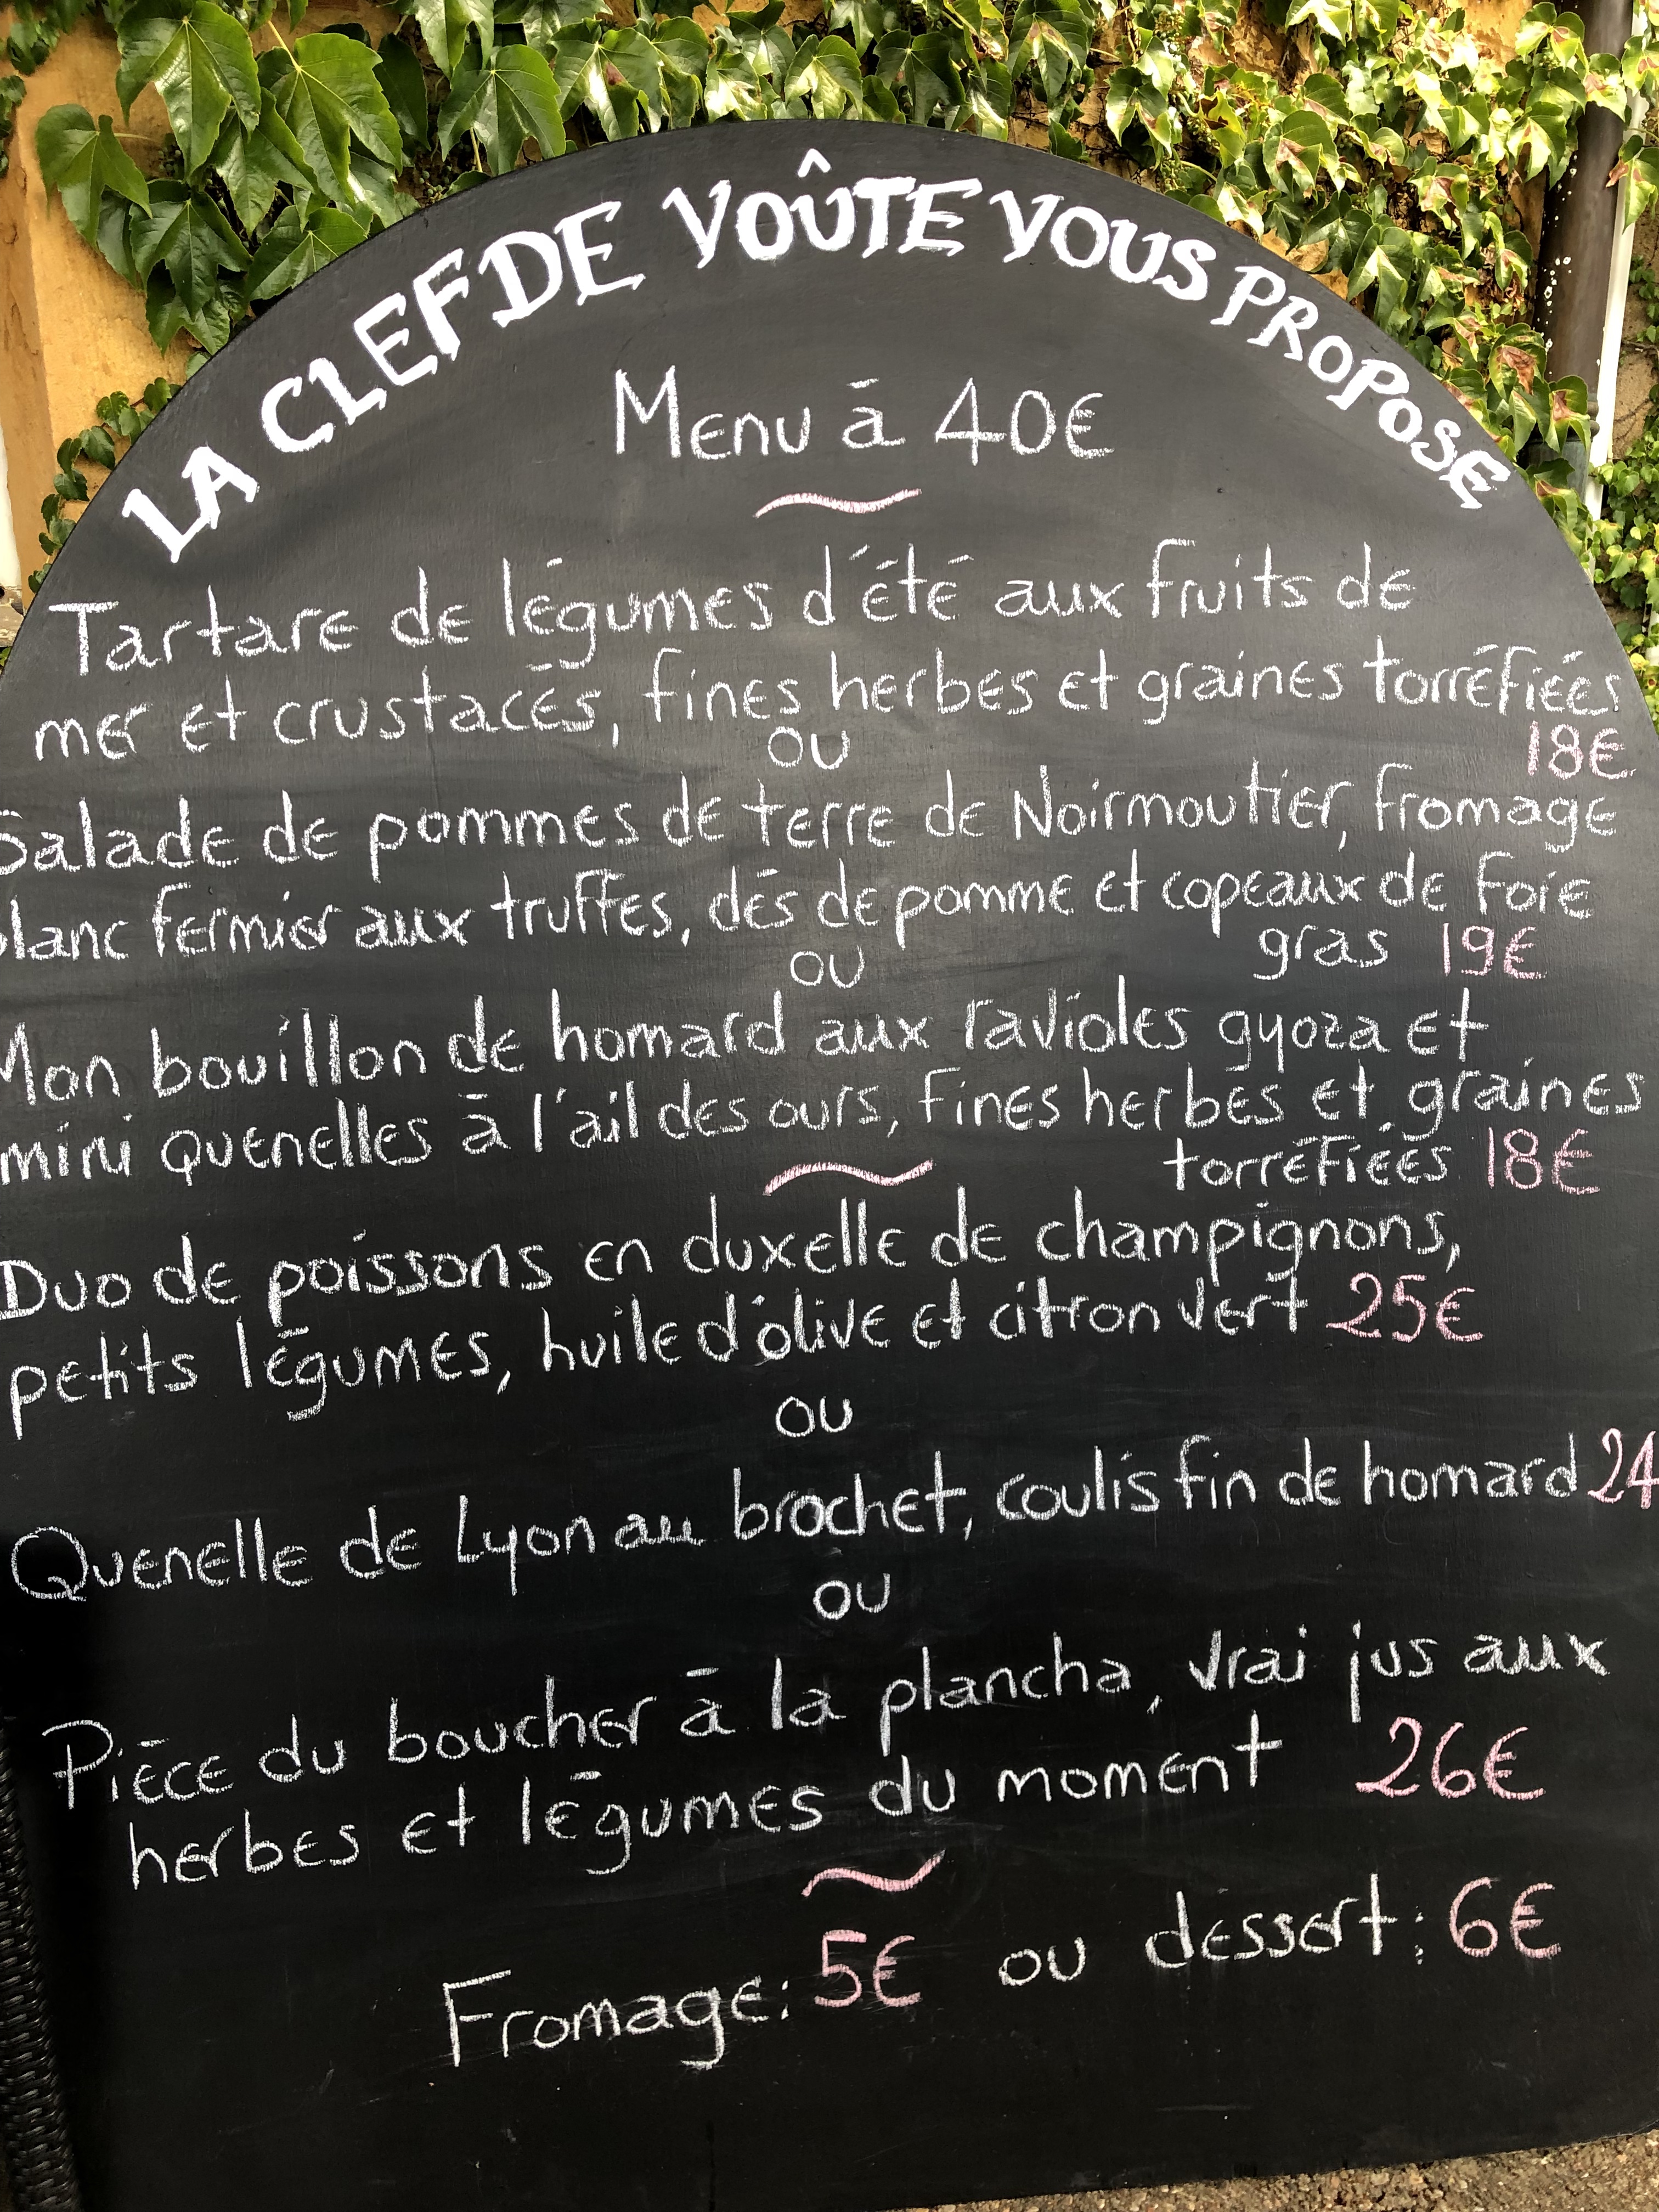 LA CLEF DE VOÛTE VOUS PROPOSE
Menu à 40€
Tartare de légumes d'été aux fruits de
mer et crustacés, fines herbes et graines torréfiées
18€
ou
Salade de pommes de terre de Noirmoutier, fromage
blanc fermier aux truffes, dés de pomme et copeaux de foie
gras 19€
ou
Mon bouillon de homard aux ravioles gyoza et
mini quenelles à l'ail des ours, fines herbes et graines
torréfiées 18€
Duo de poissons en duxelle de champignons,
petits légumes, huile d'olive et citron vert 25€
ou
Quenelle de Lyon au brochet, coulis fin de homard 24
ou
Pièce du boucher à la plancha, vrai jus aux
herbes et légumes du moment 26€
Fromage: 5€ ou dessert: 6€